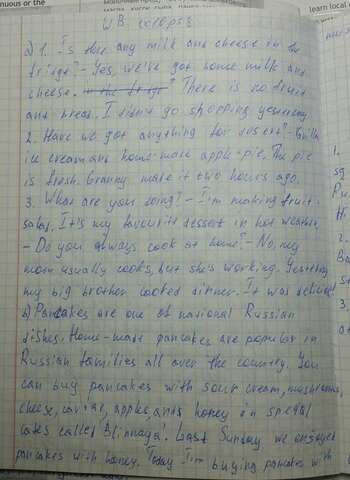 nuous or the
learn local
WB
21. Is there any milk and cheese in the
fridge? - Yes, we've got some milk and
cheese. in the fridge There is no fruit
and bread. I didn't go shopping yesterday
2. Have we got anything for
ice cream and home-made apple-pie. The pie
is fresh. Granny made it two hours ago.
3. What are you doing? - I'm making fruit
salad. It's my favourite dessert in hot weather
- Do you always cook at home? - No, my
mom usually cooks, but she's working. Yesterday
my big brother cooked dinner. It was
b) Pancakes are one of national Russian
dishes. Home-made pancakes are popular in
Russian families all over the country. You
can buy pancakes with sour cream, mushrooms,
cheese, caviar, apples and honey in special
cafes called "Blinnaya". Last Sunday we enjoyed
pancakes with honey. Today I'm buying pancakes with